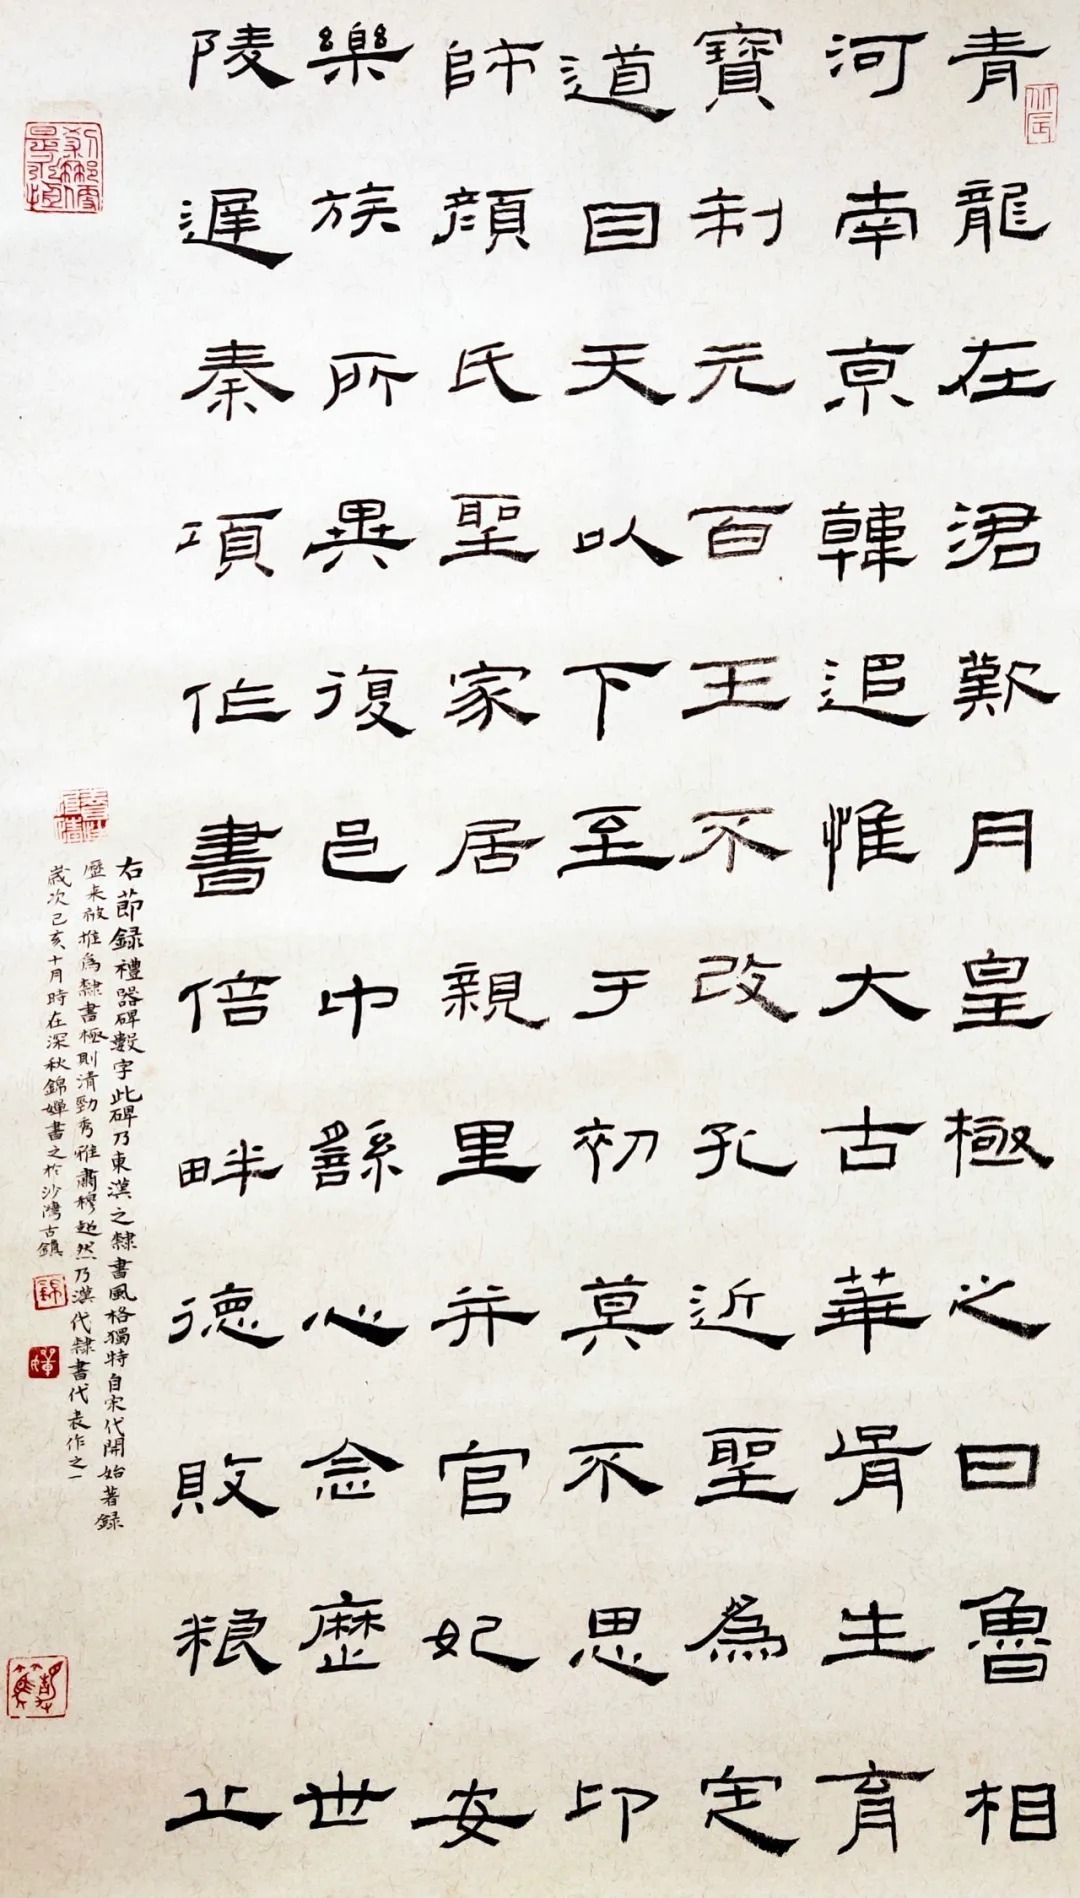 青龍在涒歎月皇極之日魯相
河南京韓追惟大古華胥生育
寶制元百王不改孔近聖為定
道目天以下至于初莫不思卬
師顏氏聖家居親里并官妃安
樂族所異復邑中繇心念歷世
陵遲秦項作書倍畔德敗粮止
右節録禮器碑數字此碑乃東漢之隸書風格獨特自宋代開始著録
歷來被推為隸書極則清勁秀雅肅穆超然乃漢代隸書代表作之一
歲次己亥十月時在深秋錦嬋書之於沙灣古鎮